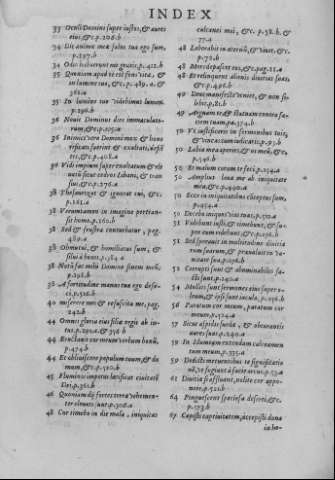 INDEX
33 Oculi Domini super iustos, & aures
eius, &c. p.208.b
34 Dic animæ meæ salus tua ego sum,
p.397.b
34 Odio habuerunt me gratis, p.412.b
35 Quoniam apud te est fons vitæ, &
in lumine tuo, &c. p. 489.a. &
35 In lumine tuo videbimus lumen.
p.296.b
36 Novit Dominus dies immaculato-
rum &c.
36 Inimici vero Domini mox & hono
rificati fuerint & exaltati, defi
&c. p.408.a
36 Vidi impium super exaltatum & ele
vatum sicut cedros Libani, & tran
sivi, &c. p.276.a
38 Thesaurizat & ignorat cui, &c.
p.181.a
38 Verumtamen in imagine pertran-
sit homo, p.160.b
38 Sed & frustra conturbatur, pag.
489.a
38 Obmutui, & humiliatus sum, &
silui à bonis, p.184.a
38 Notum fac mihi Domine finem meum,
p.258.b
38 A fortitudine manus tuæ ego defe-
ci, p.516.b
40 miserere mei & resuscita me, pag.
242.b
44 Omnis gloria eius filiæ regis ab in-
tus, p.290.a. & 356.b
44 Eructavit cor meum verbum bonum,
p.474.b
44 Et obliviscere populum tuum, & do
mum, &c. p.510.b
45 Fluminis impetus lætificat civitatem
Dei, p.36.b
46 Quoniam dij fortes terræ vehemen-
ter elevati sunt, p.308.a
48 Cur timebo in die mala, iniquitas
calcanei mei, &c. p.38.b. &
77.a
48 Laborabit in æternum, & vivet, &c.
p.70.b
48 Mors depascet eos, &c. pag.21.a
48 Et relinquent alienis divitias suas,
&c. p.496.b
49 Deus manifeste veniet, & non si-
lebit, p.81.b
49 Arguam te & statuam contra fa-
ciem tuam, pa.374.b
50 Vt iustificeris in sermonibus tuis,
& vincas cum iudicaris, p.93.b
50 Labia mea aperies, & os meum, &c.
p.546.b
50 Et malum coram te feci, p.254.a
50 Amplius lava me ab iniquitate
mea, &c. p.440.a
50 Ecce in iniquitatibus conceptus sum,
p.454.a
50 Docebo iniquos vias tuas, p.530.a
51 Videbunt iusti, & timebunt, & su-
per eum ridebunt, &c. p.236.b
51 Sed speravit in multitudine divitia
rum suarum, & prævaluit in va-
nitate sua, p.256.b
52 Corrupti sunt & abominabiles fa-
cti sunt, p.240.a
54 Molliti sunt sermones eius super o-
leum, & ipsi sunt iacula, p.256.b
56 Paratum cor meum, paratum cor
meum, p.124.a
57 Sicut aspidis surdæ, & obturantis
aures suas, p.240.a
59 In Idumæam extendam calceamen
tum meum, p.335.a
59 Dedisti metuentibus te significatio
nem, ut fugiant à facie arcus, p.53.a
61 Divitiæ si affluant, nolite cor appo-
nere, p.522.b
64 Pinguescent speciosa deserti, & c.
p.193.b
67 Cepisti captivitatem, accepisti dona
in ho-